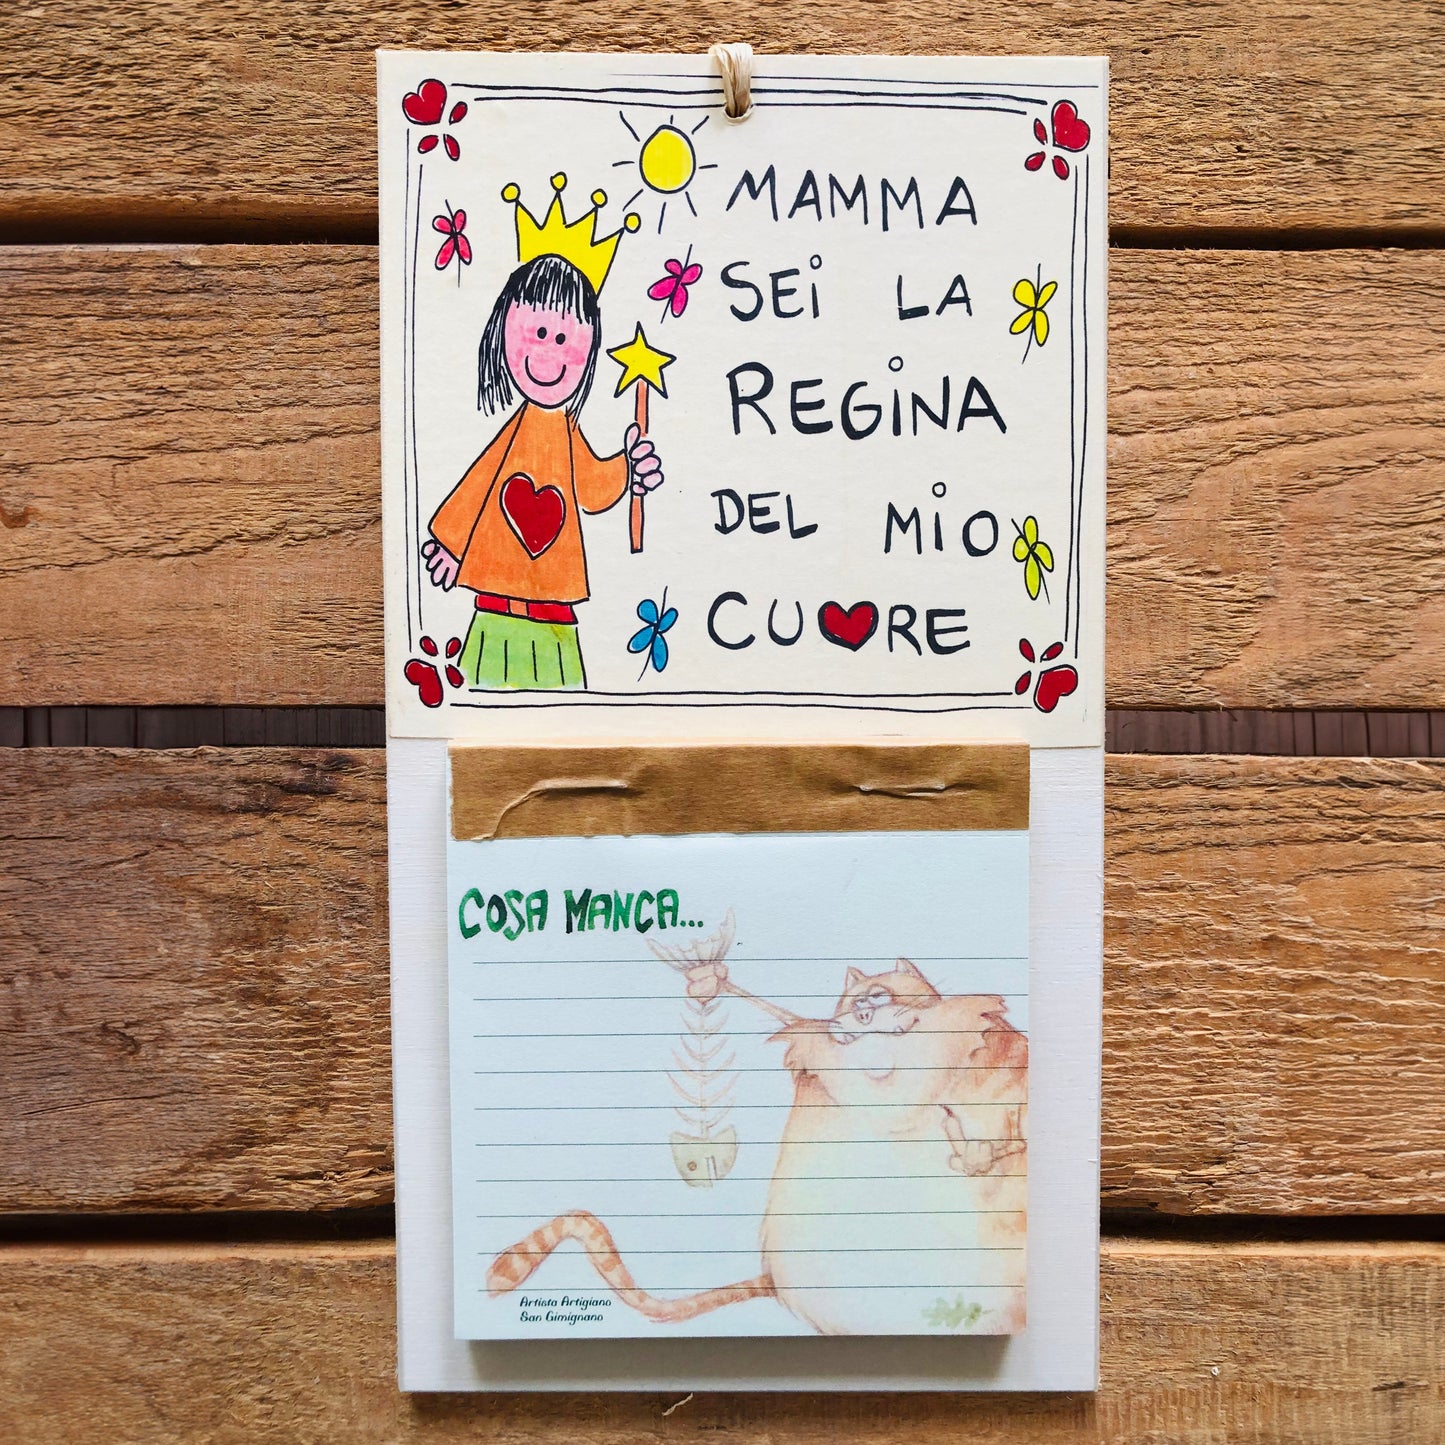 MAMMA
SEI LA
REGINA
DEL MIO
CU❤RE
COSA MANCA...
Artista Artigiano
San Gimignano